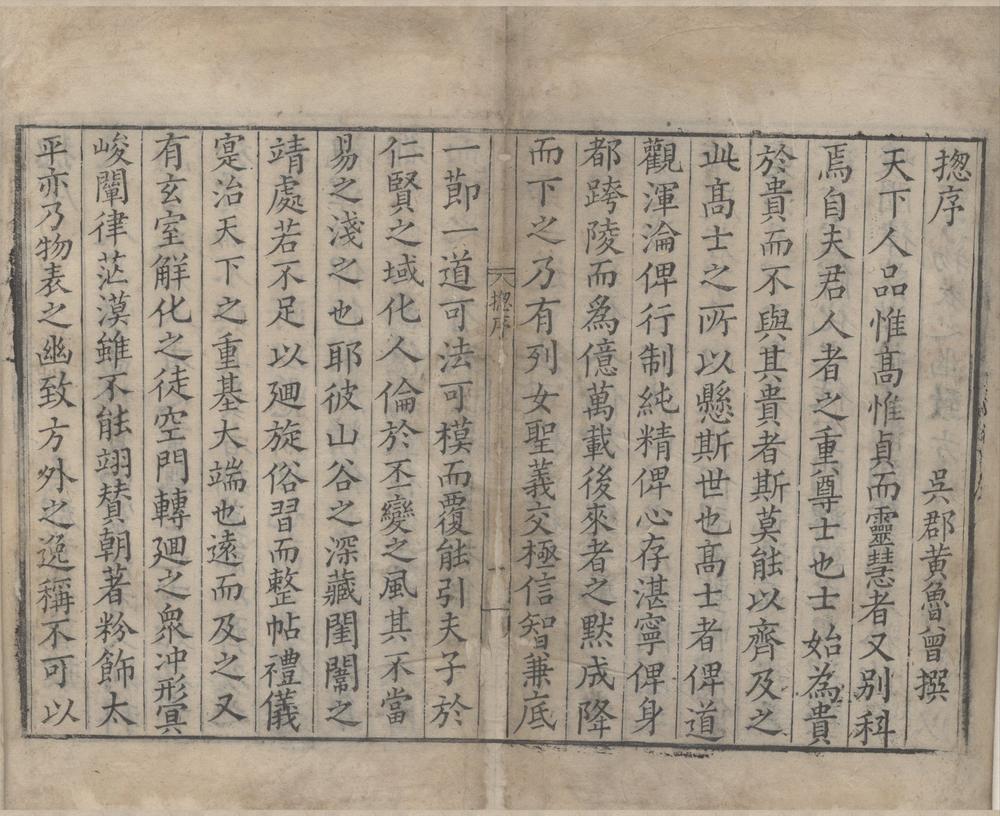 揔序
吳郡黄魯曾撰
天下人品惟髙惟貞而靈慧者又别科
焉自夫君人者之重尊士也士始為貴
於貴而不與其貴者斯莫能以齊及之
此髙士之所以懸斯世也髙士者俾道
觀渾淪俾行制純精俾心存湛寧俾身
都跨陵而爲億萬載後來者之黙成降
而下之乃有列女聖義交極信智兼底
揔序
一
一節一道可法可模而覆能引夫子於
仁賢之域化人倫於丕變之風其不當
易之淺之也耶彼山谷之深藏閨闈之
靖處若不足以廽旋俗習而整帖禮儀
寔治天下之重基大端也遠而及之又
有玄室解化之徒空門轉廽之衆冲形冥
峻闡律茫漠雖不能翊賛朝著粉飾太
平亦乃物表之幽致方外之逸稱不可以